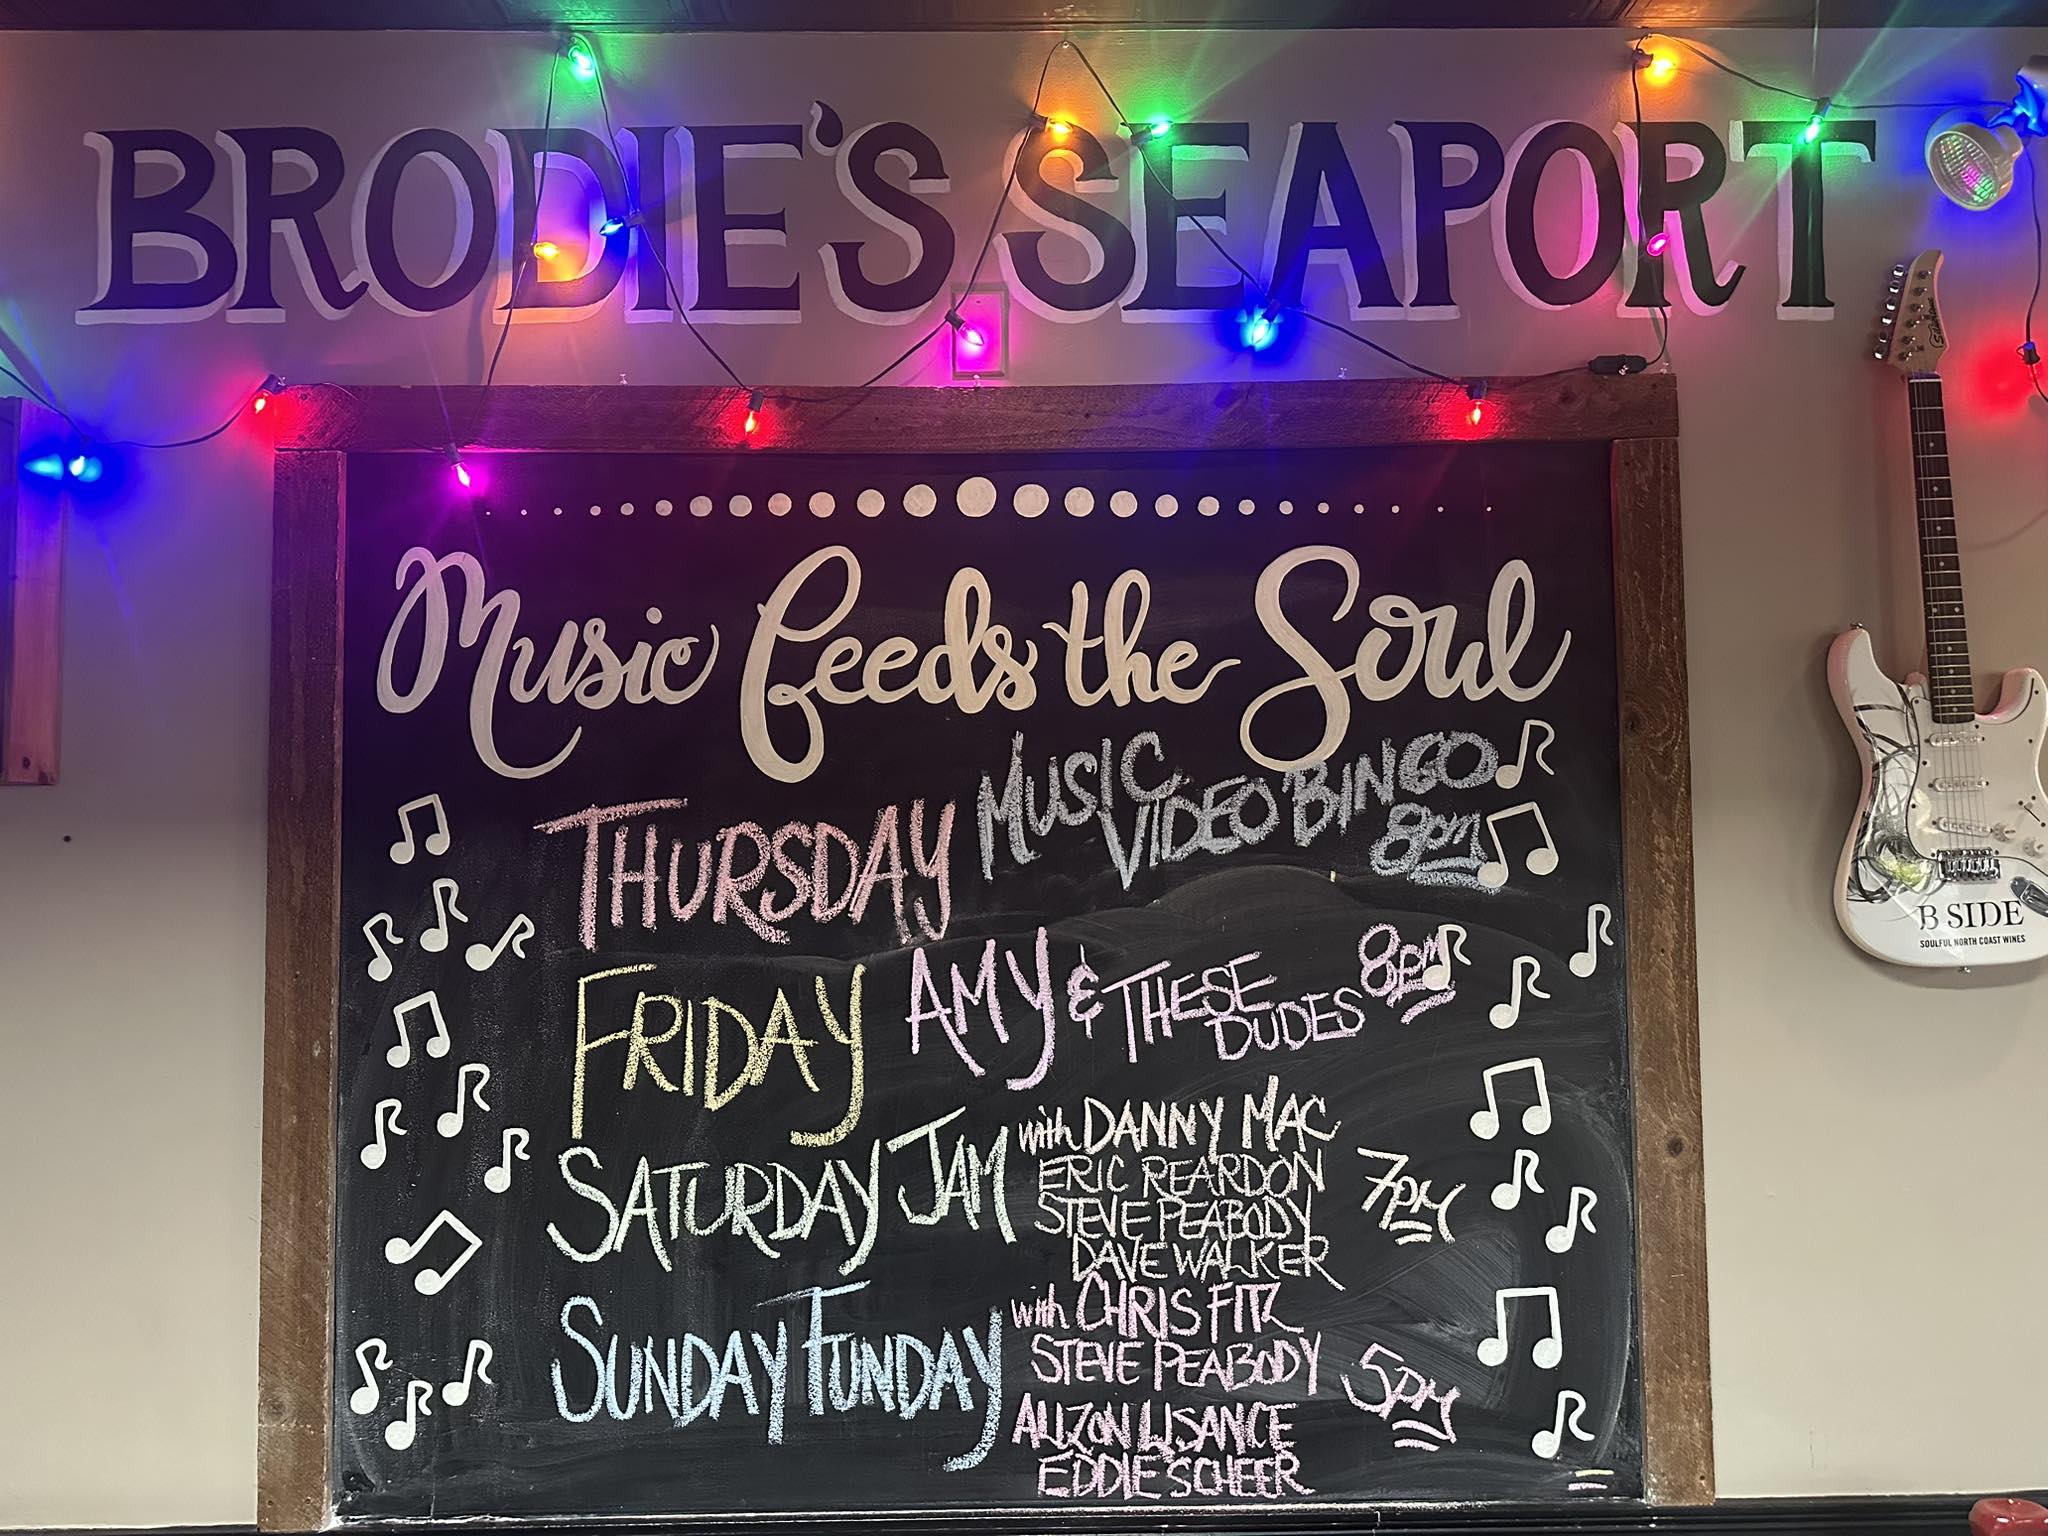 BRODIE'S SEAPORT
Music feeds the Soul
THURSDAY MUSIC
VIDEO BINGO
8pm
FRIDAY AMY & THESE
DUDES 8pm
SATURDAY JAM with DANNY MAC
ERIC REARDON
STEVE PEABODY
DAVE WALKER
7pm
SUNDAY FUNDAY with CHRIS FITZ
STEVE PEABODY
ALIZON LISANCE
EDDIE SCHEER
5pm
B SIDE
SOULFUL NORTH COAST WINES